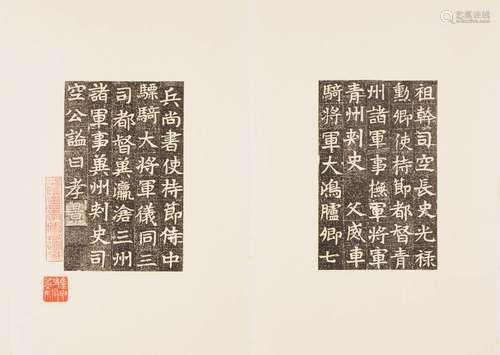 祖幹司空長史光祿
勳卿使持節都督青
州諸軍事撫軍將軍
青州刺史 父威車
騎將軍大鴻臚卿七
兵尚書使持節侍中
驃騎大將軍儀同三
司都督冀瀛滄三州
諸軍事冀州刺史司
空公謚曰孝